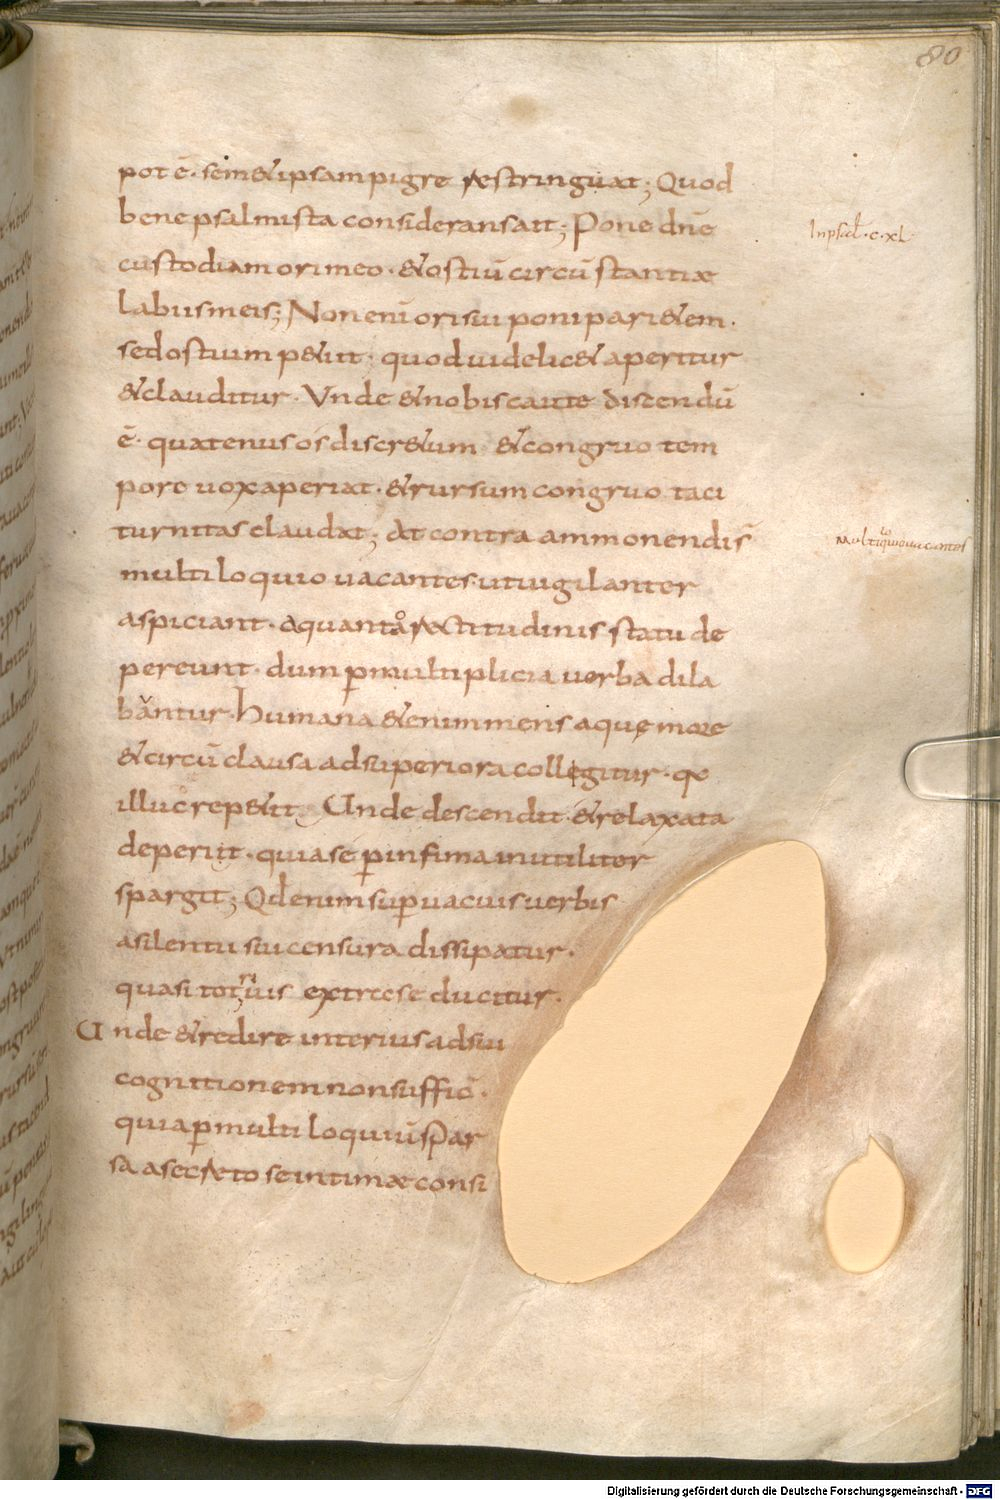 80
pot ē. sem&ipsam pigre restringuat; Quod
bene psalmista considerans ait; Pone dn̄e
In psal c.xl
custodiam ori meo. &ostiū circūstantiæ
labiis meis; Non enī ori sui poni pari&em.
sed ostium p&iit. quod uidelic& aperitur
&clauditur. Vnde &nobis caute discendū
ē. quatenus os discr&um &congruo tem
pore uox aperiat. &rursum congruo taci
turnitas claudat; At contra ammonendi s̄
Multiloquio uacantes
multiloquio uacantes. ut uigilanter
aspiciant. a quanto rectitudinis statu de
pereunt. dum p̱ multiplicia uerba dila
bantur. Humana &enim mens aquę more
&circū clausa ad superiora collegitur. qe
illuc rep&it Unde descendit. &relaxata
deperiit. quia se p̱ infima inutiliter
spargit; Qđ enim sup̱uacuis uerbis
a silentii sui censura dissipatur.
quasi tot riuis extra se ducitur.
Unde &redire interius ad sui
cognitionem non suffic̄.
quia p̱ multiloquiū spar
sa a secreto se intimæ consi
Digitalisierung gefördert durch die Deutsche Forschungsgemeinschaft - DFG